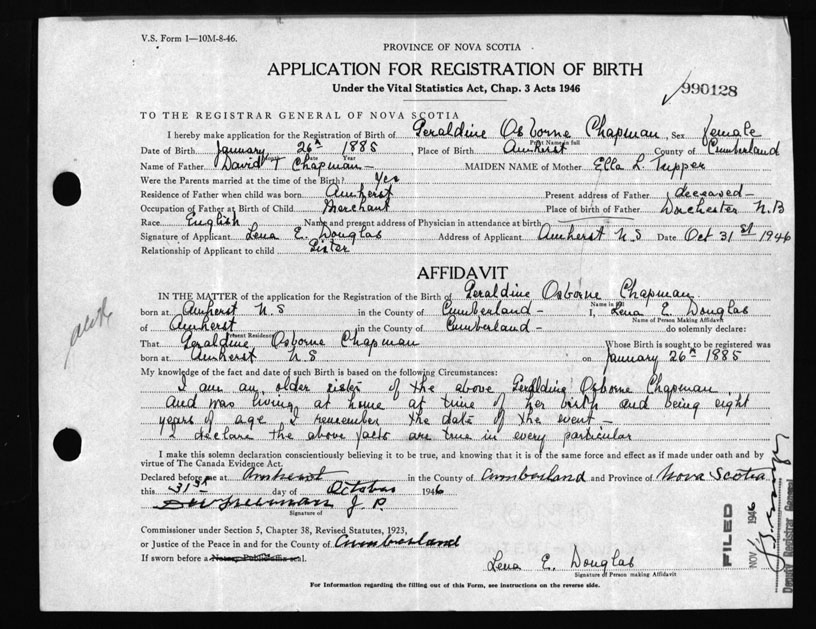 V.S. Form 1—10M-8-46.
PROVINCE OF NOVA SCOTIA
APPLICATION FOR REGISTRATION OF BIRTH
Under the Vital Statistics Act, Chap. 3 Acts 1946
990128
TO THE REGISTRAR GENERAL OF NOVA SCOTIA
I hereby make application for the Registration of Birth of Geraldine Osborne Chapman, Sex female
Print Name in full
Date of Birth January 26th 1885, Place of Birth Amherst County of Cumberland
Month Date Year
Name of Father David T Chapman— MAIDEN NAME of Mother Ella L. Tupper
Were the Parents married at time of the Birth? Yes
Residence of Father when child was born Amherst Present address of Father deceased—
Occupation of Father at Birth of Child Merchant Place of birth of Father Dorchester N.B
Race English Name and present address of Physician in attendance at birth
Signature of Applicant Lena E. Douglas Address of Applicant Amherst N.S Date Oct 31st 1946
Relationship of Applicant to child Sister
AFFIDAVIT
IN THE MATTER of the application for the Registration of the Birth of Geraldine Osborne Chapman
Name in full
born at Amherst N.S in the County of Cumberland— I, Lena E. Douglas
Name of Person Making Affidavit
of Amherst in the County of Cumberland— do solemnly declare:
Present Residence
That Geraldine Osborne Chapman Whose Birth is sought to be registered was
born at Amherst N S on January 26th 1885
My knowledge of the fact and date of such Birth is based on the following Circumstances:
I am an older sister of the above Geraldine Osborne Chapman
and was living at home at time of her birth and being eight
years of age I remember the date of the event—
I declare the above facts are true in every particular
I make this solemn declaration conscientiously believing it to be true, and knowing that it is of the same force and effect as if made under oath and by
virtue of The Canada Evidence Act.
Declared before me at Amherst in the County of Cumberland and Province of Nova Scotia
this 31st day of October 1946
J. P.
Signature of
Commissioner under Section 5, Chapter 38, Revised Statutes, 1923,
or Justice of the Peace in and for the County of Cumberland
If sworn before a Notary Public affix seal.
Lena E. Douglas
Signature of Person making Affidavit
For Information regarding the filling out of this Form, see instructions on the reverse side.
FILED
NOV 1 1946
Deputy Registrar General